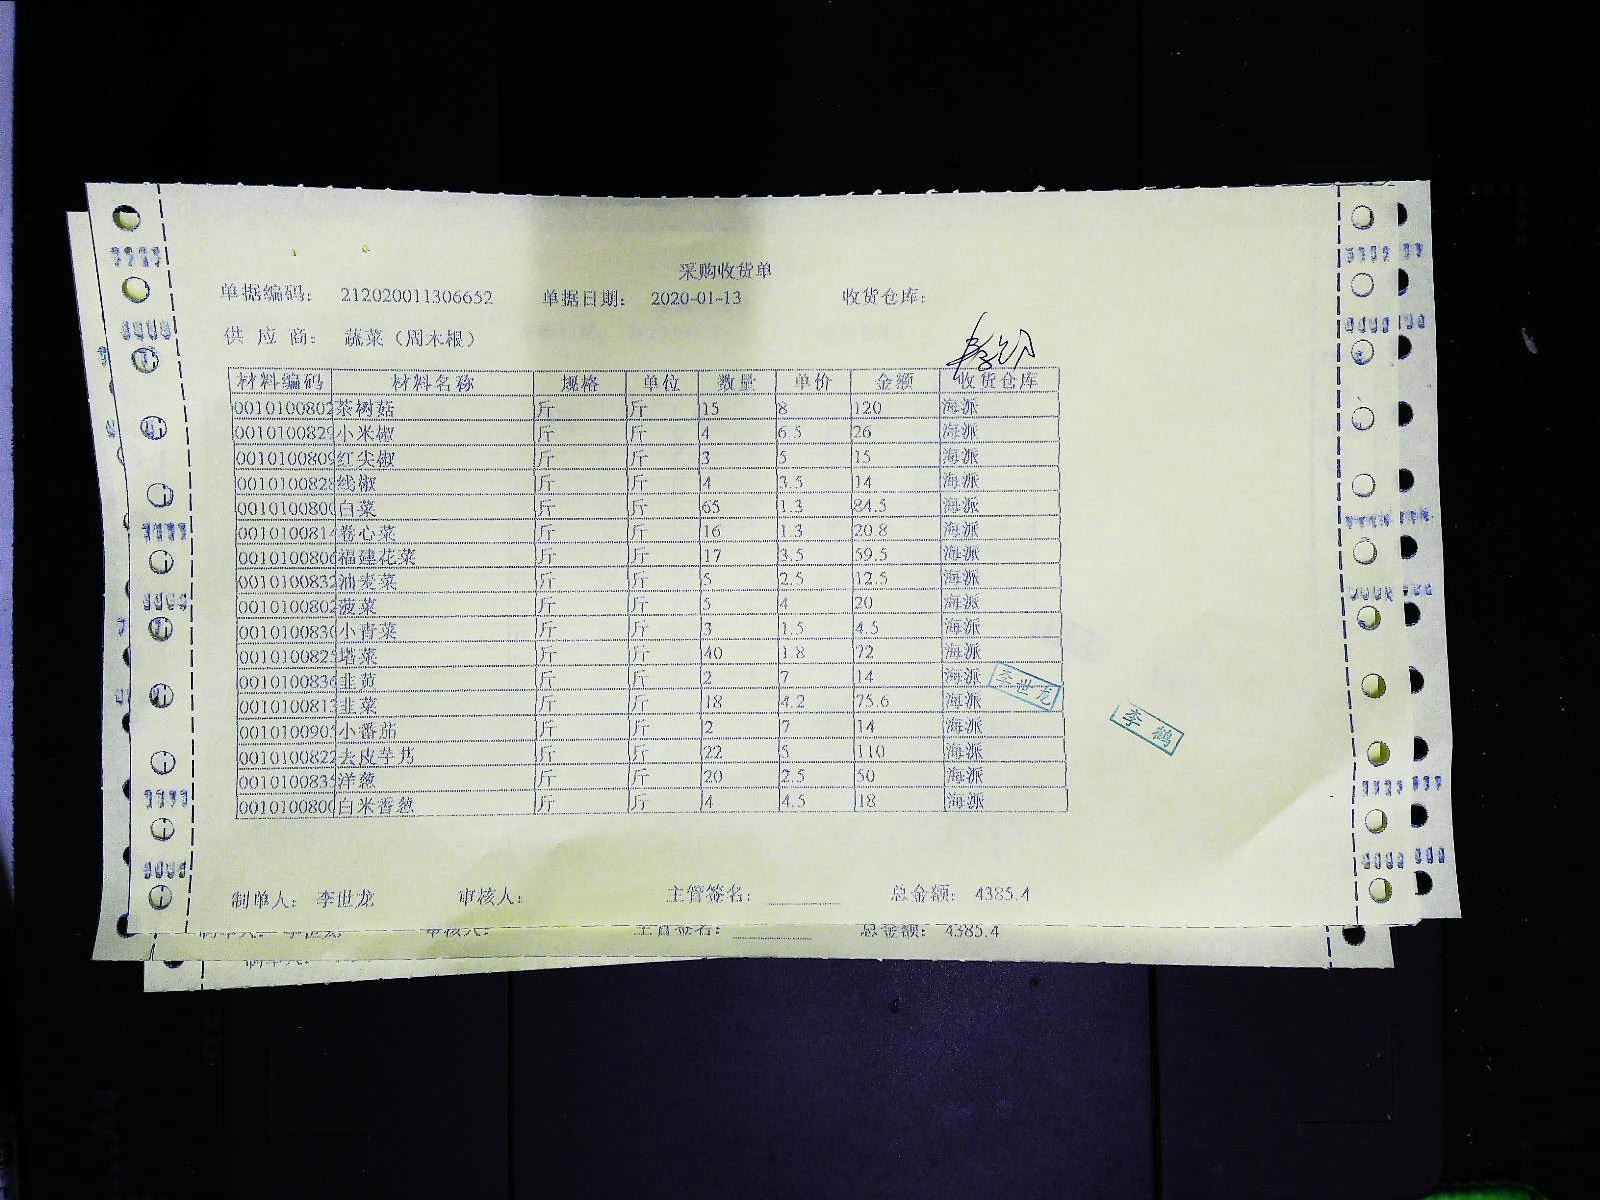 采购收货单
单据编码： 212020011306652 单据日期： 2020-01-13 收货仓库：
供 应 商： 蔬菜（周木根）
材料编码 材料名称 规格 单位 数量 单价 金额 收货仓库
0010100802 茶树菇 斤 斤 15 8 120 海派
0010100829 小米椒 斤 斤 4 6.5 26 海派
0010100809 红尖椒 斤 斤 3 5 15 海派
0010100828 线椒 斤 斤 4 3.5 14 海派
0010100800 白菜 斤 斤 65 1.3 84.5 海派
0010100814 卷心菜 斤 斤 16 1.3 20.8 海派
0010100806 福建花菜 斤 斤 17 3.5 59.5 海派
0010100832 油麦菜 斤 斤 5 2.5 12.5 海派
0010100802 菠菜 斤 斤 5 4 20 海派
0010100830 小青菜 斤 斤 3 1.5 4.5 海派
0010100825 塔菜 斤 斤 40 1.8 72 海派
0010100836 韭黄 斤 斤 2 7 14 海派
0010100813 韭菜 斤 斤 18 4.2 75.6 海派
0010100905 小番茄 斤 斤 2 7 14 海派
0010100822 去皮芋艿 斤 斤 22 5 110 海派
0010100835 洋葱 斤 斤 20 2.5 50 海派
0010100800 白米香葱 斤 斤 4 4.5 18 海派
李世龙
李鹤
制单人： 李世龙 审核人： 主管签名： 总金额： 4385.4
制单人： 李世龙 审核人： 主管签名： 总金额： 4385.4
制单人：